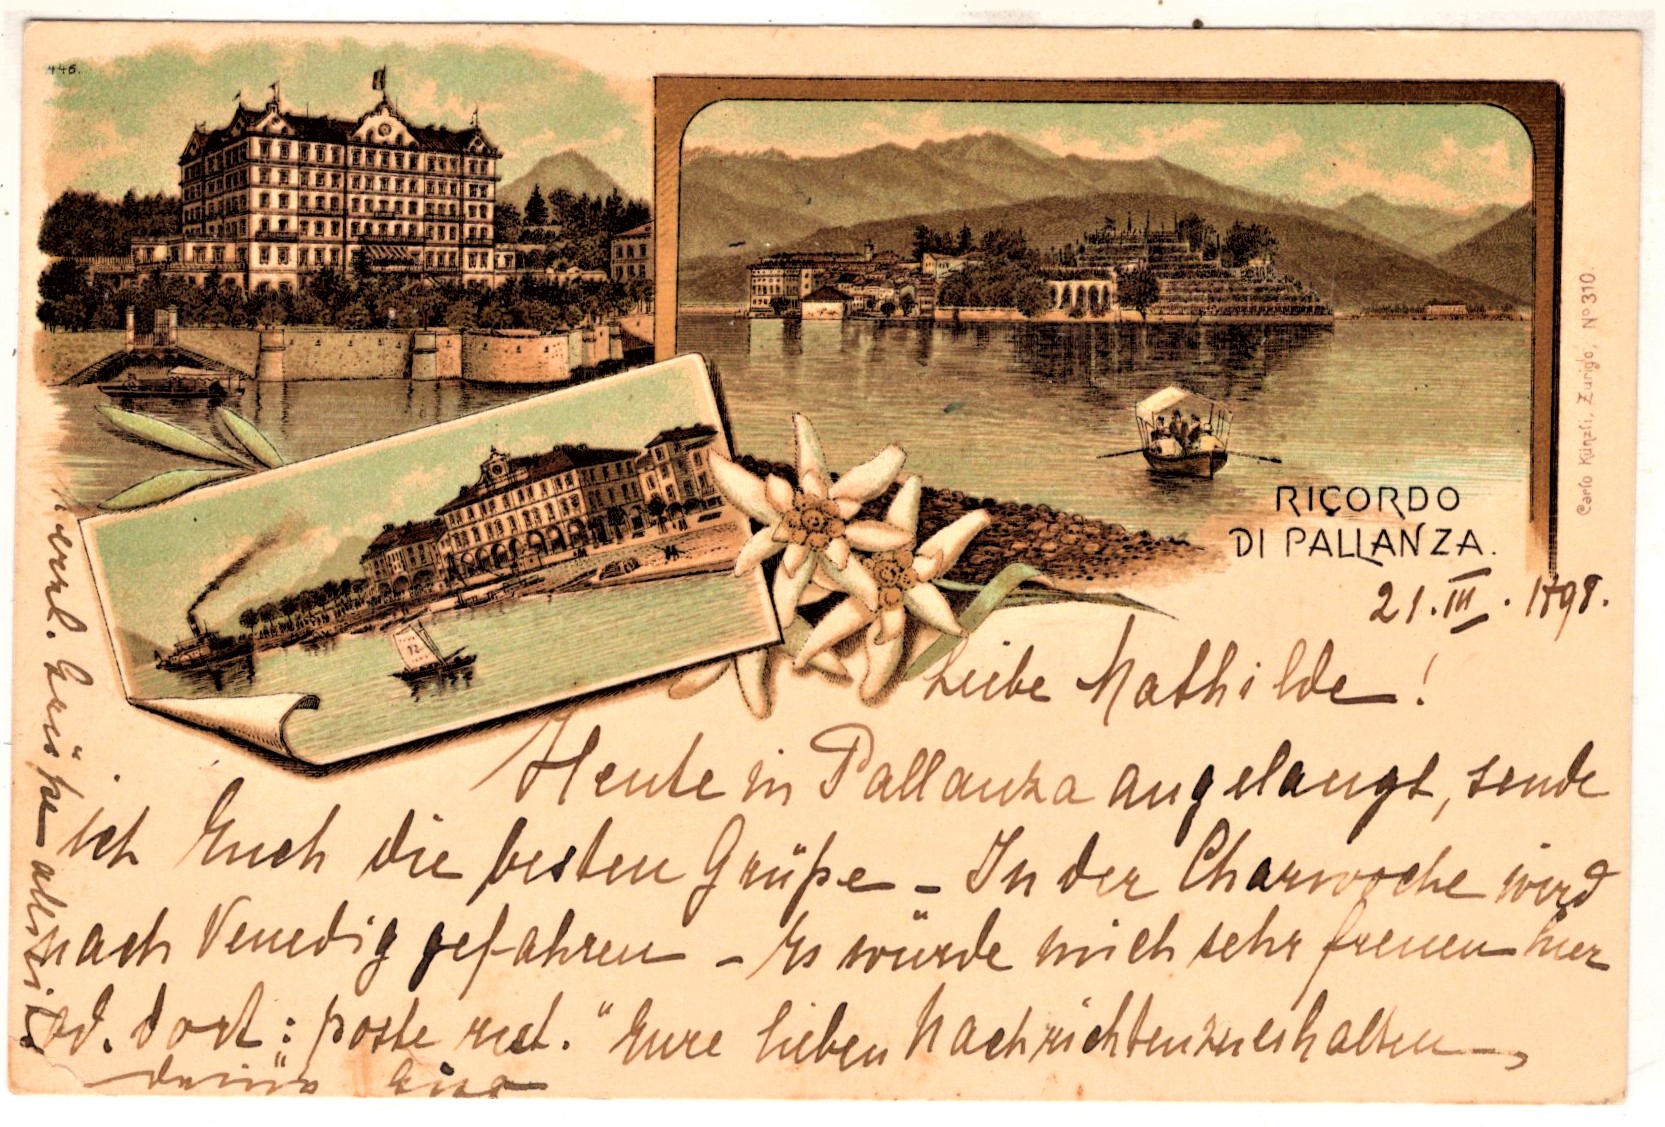 446.
RICORDO
DI PALLANZA.
Carlo Künzli, Zurigo, No 310.
21. III. 1898.
Liebe Mathilde!
Heute in Pallanza angelangt, sende
ich Euch die besten Grüße – In der Charwoche wird
nach Venedig gefahren – Es würde mich sehr freuen hier
od. dort: poste rest." Eure lieben Nachrichten zu erhalten –,
Herzl. Grüße allseits